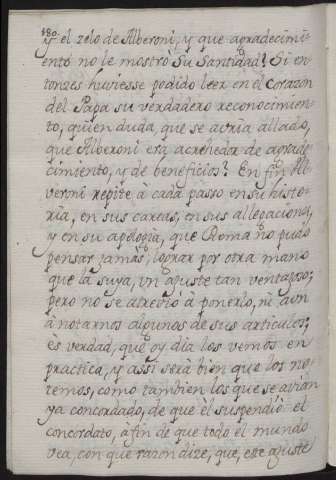 180.
y el zelo de Alberoni; y que agradecimi-
ento no le mostrò Su Santidad? Si en-
tonzes huviesse podido leer en el Corazon
del Papa su verdadero reconocimien-
to, quien duda, que se avria allado,
que Alberoni era acrehedor de agrade-
cimiento, y de beneficios? En fin Al-
veroni repite à cada passo en su histo-
ria, en sus cartas, en sus allegaciones,
y en su apologia, que Roma no pudo
pensar jamas, lograr por otra mano
que la suya, un ajuste tan ventajoso;
pero no se atreviò à ponerlo, ni aun
à notarnos algunos de sus articulos;
es verdad, que oy dia los vemos en
practica, y assi serà bien que los no-
temos, como tambien los que se avian
ya concordado, de que èl suspendiò el
concordato, à fin de que todo el mundo
vea, con que razon dize, que, este ajuste